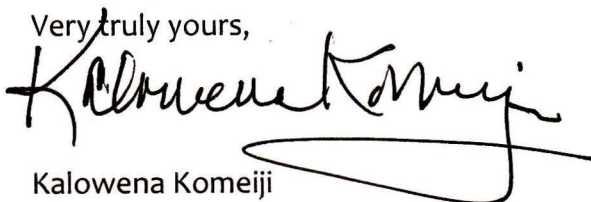 Very truly yours,
Kalowena Komeiji
Kalowena Komeiji